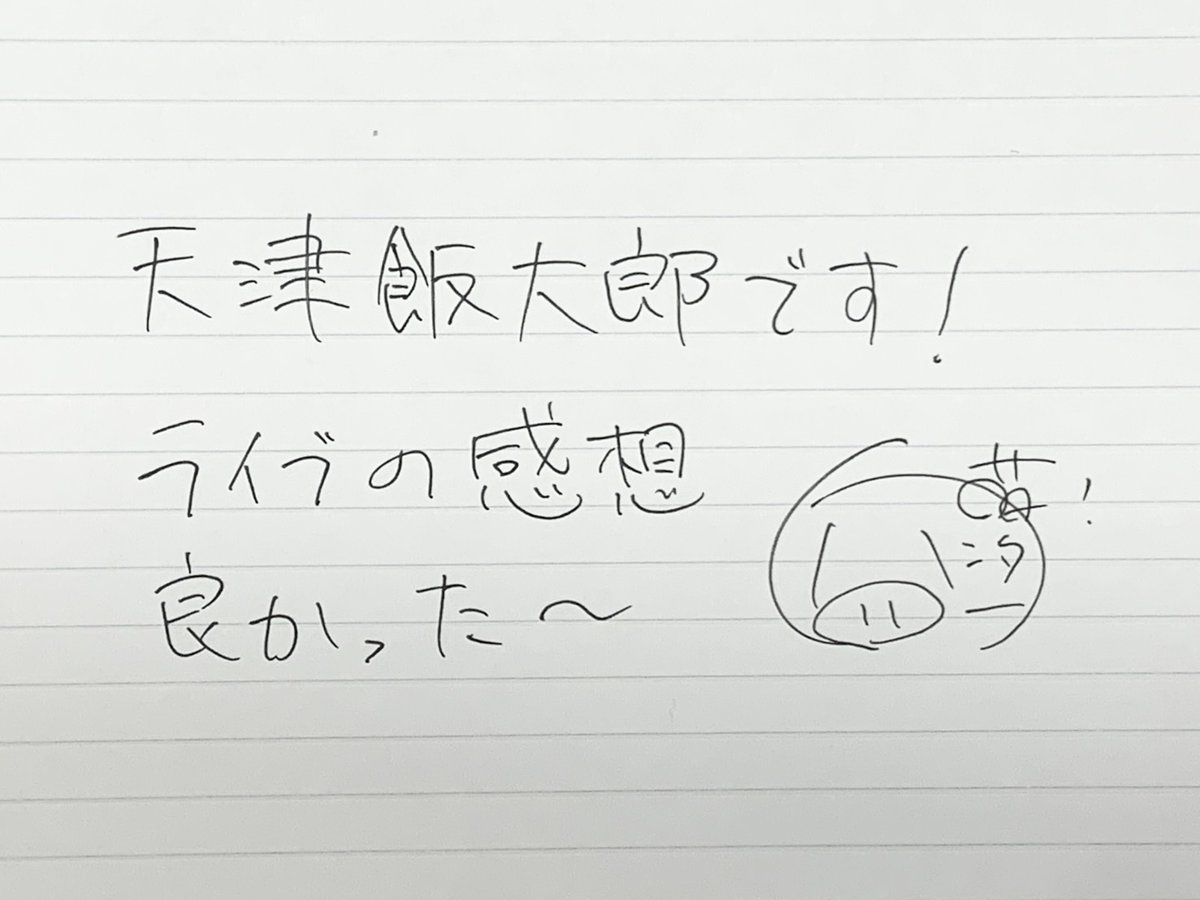 天津飯大郎です!
ライブの感想
良かった〜